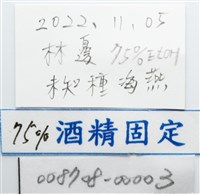 2022.11.05
林邊 75%EtOH
未知種海燕
75% 酒精固定
008708-00003